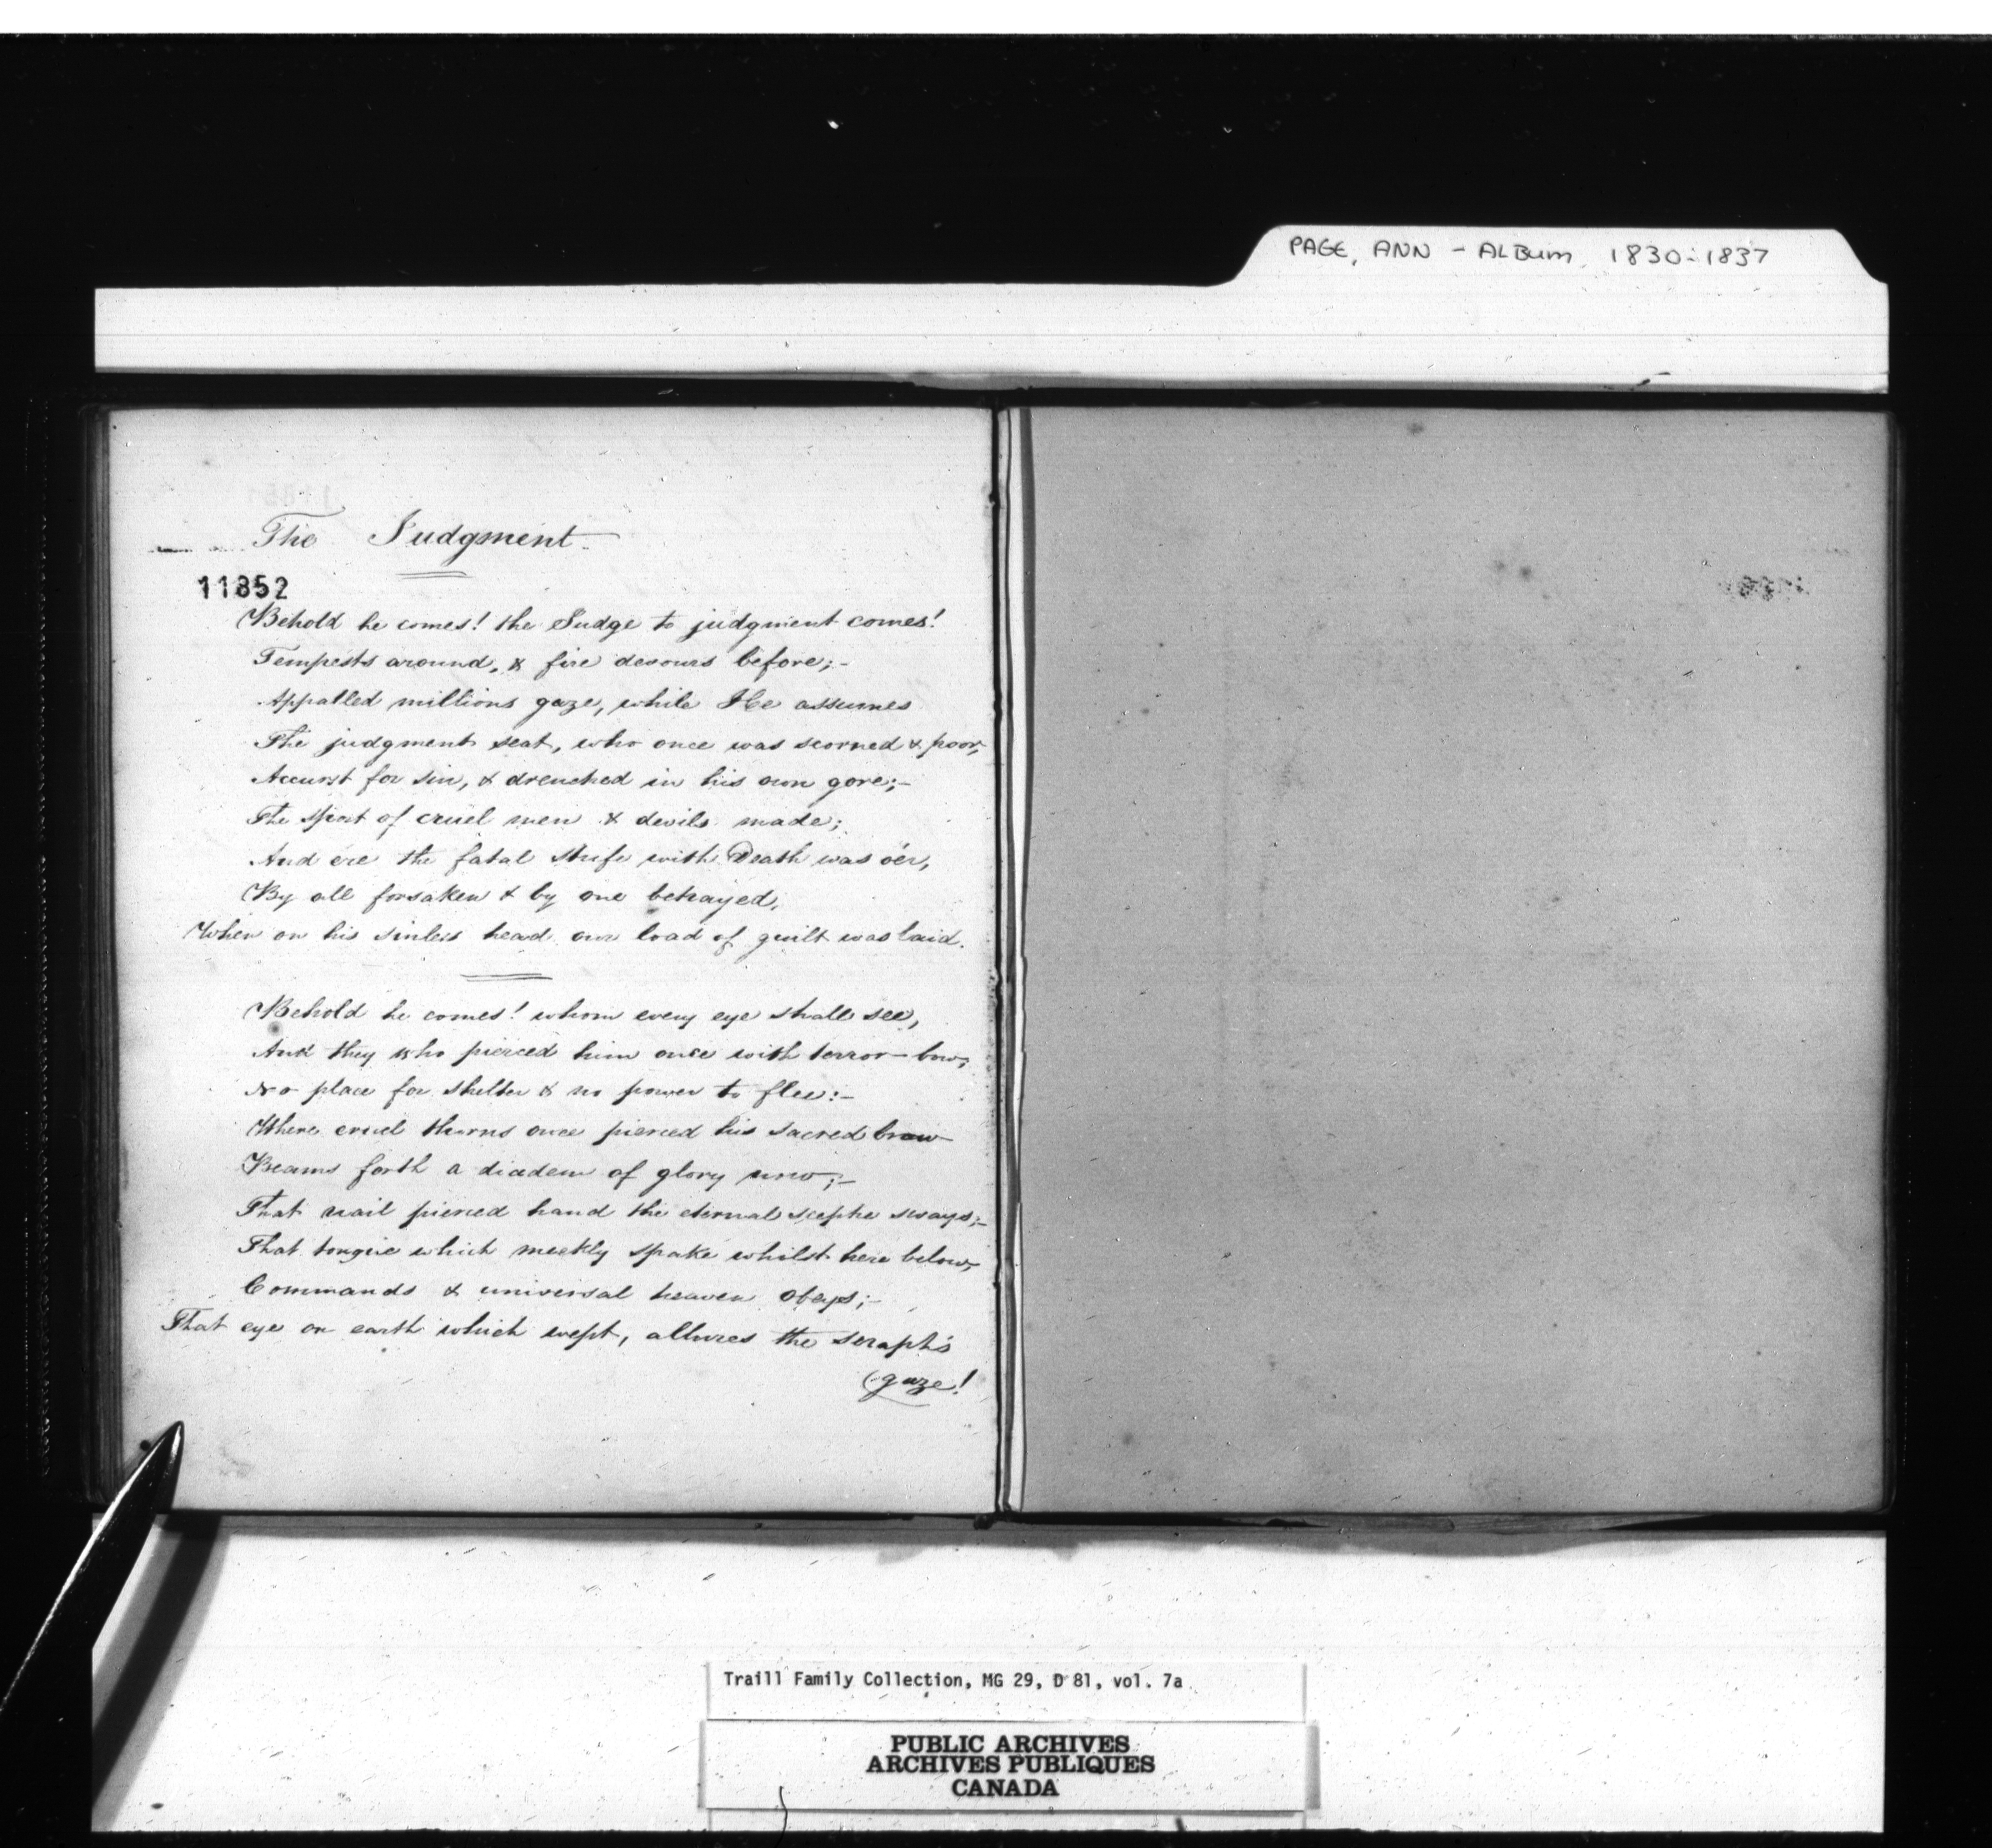 PAGE, ANN - ALBUM 1830-1837
The Judgment
11852
Behold he comes! the Judge to judgment comes!
Tempests around, & fire devours before;-
Appalled millions gaze, while He assumes
The judgment seat, who once was scorned & poor,
Accurst for sin, & drenched in his own gore;-
The sport of cruel men & devils made;
And ere the fatal strife with Death was o'er,
By all forsaken & by one betrayed,
When on his sinless head our load of guilt was laid.
Behold he comes! whom every eye shall see,
And they who pierced him once with terror-bow,
No place for shelter & no power to flee:-
Where cruel thorns once pierced his sacred brow-
Beams forth a diadem of glory now;-
That nail pierced hand the eternal sceptre sways;-
That tongue which meekly spake whilst here below,
Commands & universal heaven obeys;-
That eye on earth which wept, allures the seraph's
(gaze!
Traill Family Collection, MG 29, D 81, vol. 7a
PUBLIC ARCHIVES
ARCHIVES PUBLIQUES
CANADA